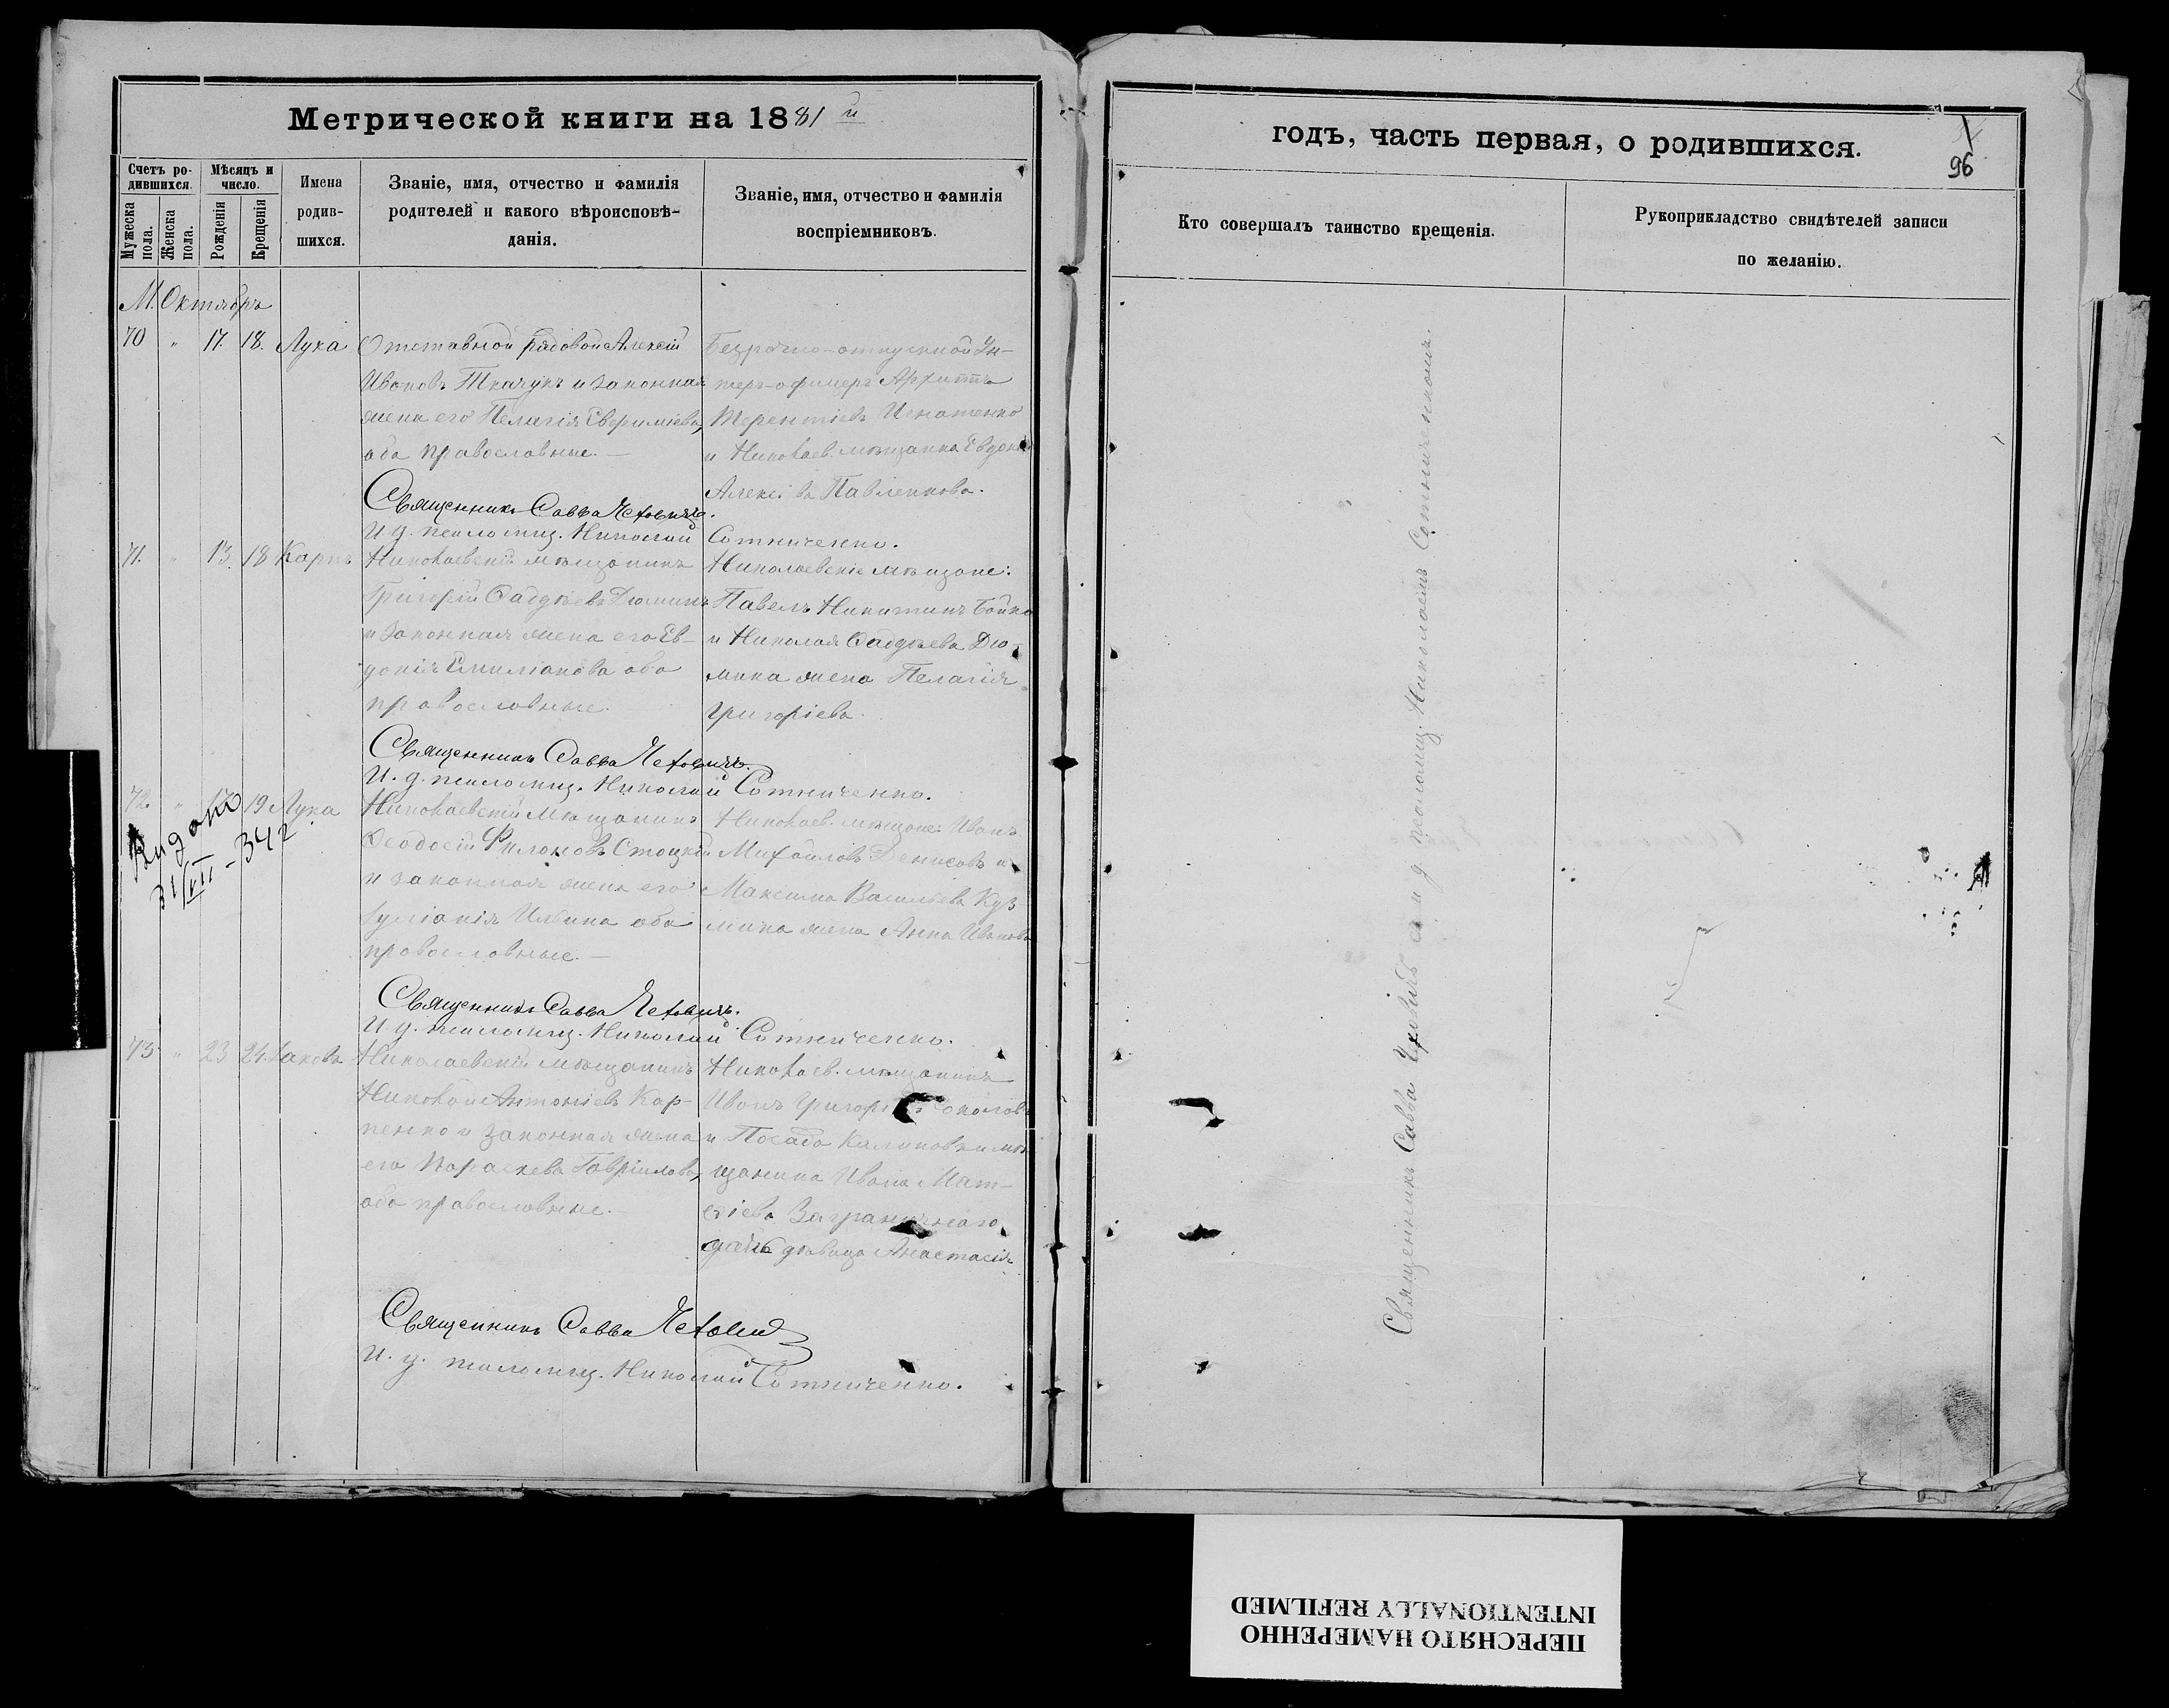 Метрической книги на 1881й
Счетъ ро-
дившихся.
Мѣсяцъ и
число.
Мужеска
пола.
Женска
пола.
Рожденія
Крещенія
Имена
родив-
шихся.
Званіе, имя, отчество и фамилія
родителей и какого вѣроисповѣ-
данія.
Званіе, имя, отчество и фамилія
воспріемниковъ.
М. Октябрь
70 " 17. 18. Лука
Отставной рядовой Алексій
Ивановъ Ткачукъ и законная
жена его Пелагія Евфиміева,
оба православные. —
Безсрочно-отпускной Ун-
теръ-офицеръ Архиппъ
Терентіевъ Игнатенко
и Николаев. мѣщанка Евдокія
Алексіева Павленкова.
Священникъ Савва Чеховичъ.
И. д. псаломщ. Николай Сотниченко.
71. " 13. 18 Карпъ
Николаевскій мѣщанинъ
Григорій Фаддѣевъ Дюминъ
и законная жена его Ев-
докія Емиліанова оба
православные.
Николаевскіе мѣщане:
Павелъ Никитинъ Бойко
и Николая Фаддѣева Дю-
мина жена Пелагія
Григоріева.
Священникъ Савва Чеховичъ.
И. д. псаломщ. Николай Сотниченко.
72. " 17 19 Лука
Видано
31/VII - 342
Николаевскій мѣщанинъ
Ѳеодосій Филоновъ Стоцкій
и законная жена его
Іуліанія Ильина оба
православные. —
Николаев. мѣщане: Иванъ
Михайловъ Денисовъ и
Максима Васильева Куз-
мина жена Анна Иванова
Священникъ Савва Чеховичъ.
И. д. псаломщ. Николай Сотниченко.
73 " 23 24. Іаковъ
Николаевскій мѣщанинъ
Николай Антоніевъ Кар-
пенко и законная жена
его Параскева Гавріилова,
оба православные. —
Николаев. мѣщанинъ
Иванъ Григорьевъ Соколовъ
и Посада Калиновки мѣ-
щанина Ивана Мат-
ѳіева Заграничнаго
дочь дѣвица Анастасія
Священникъ Савва Чеховичъ
И. д. псаломщ. Николай Сотниченко.
годъ, часть первая, о родившихся.
96
Кто совершалъ таинство крещенія.
Рукоприкладство свидѣтелей записи
по желанію.
Священникъ Савва Чеховичъ съ и д псаломщ. Николаемъ Сотниченкомъ.
ПЕРЕСНЯТО НАМЕРЕННО
INTENTIONALLY REFILMED